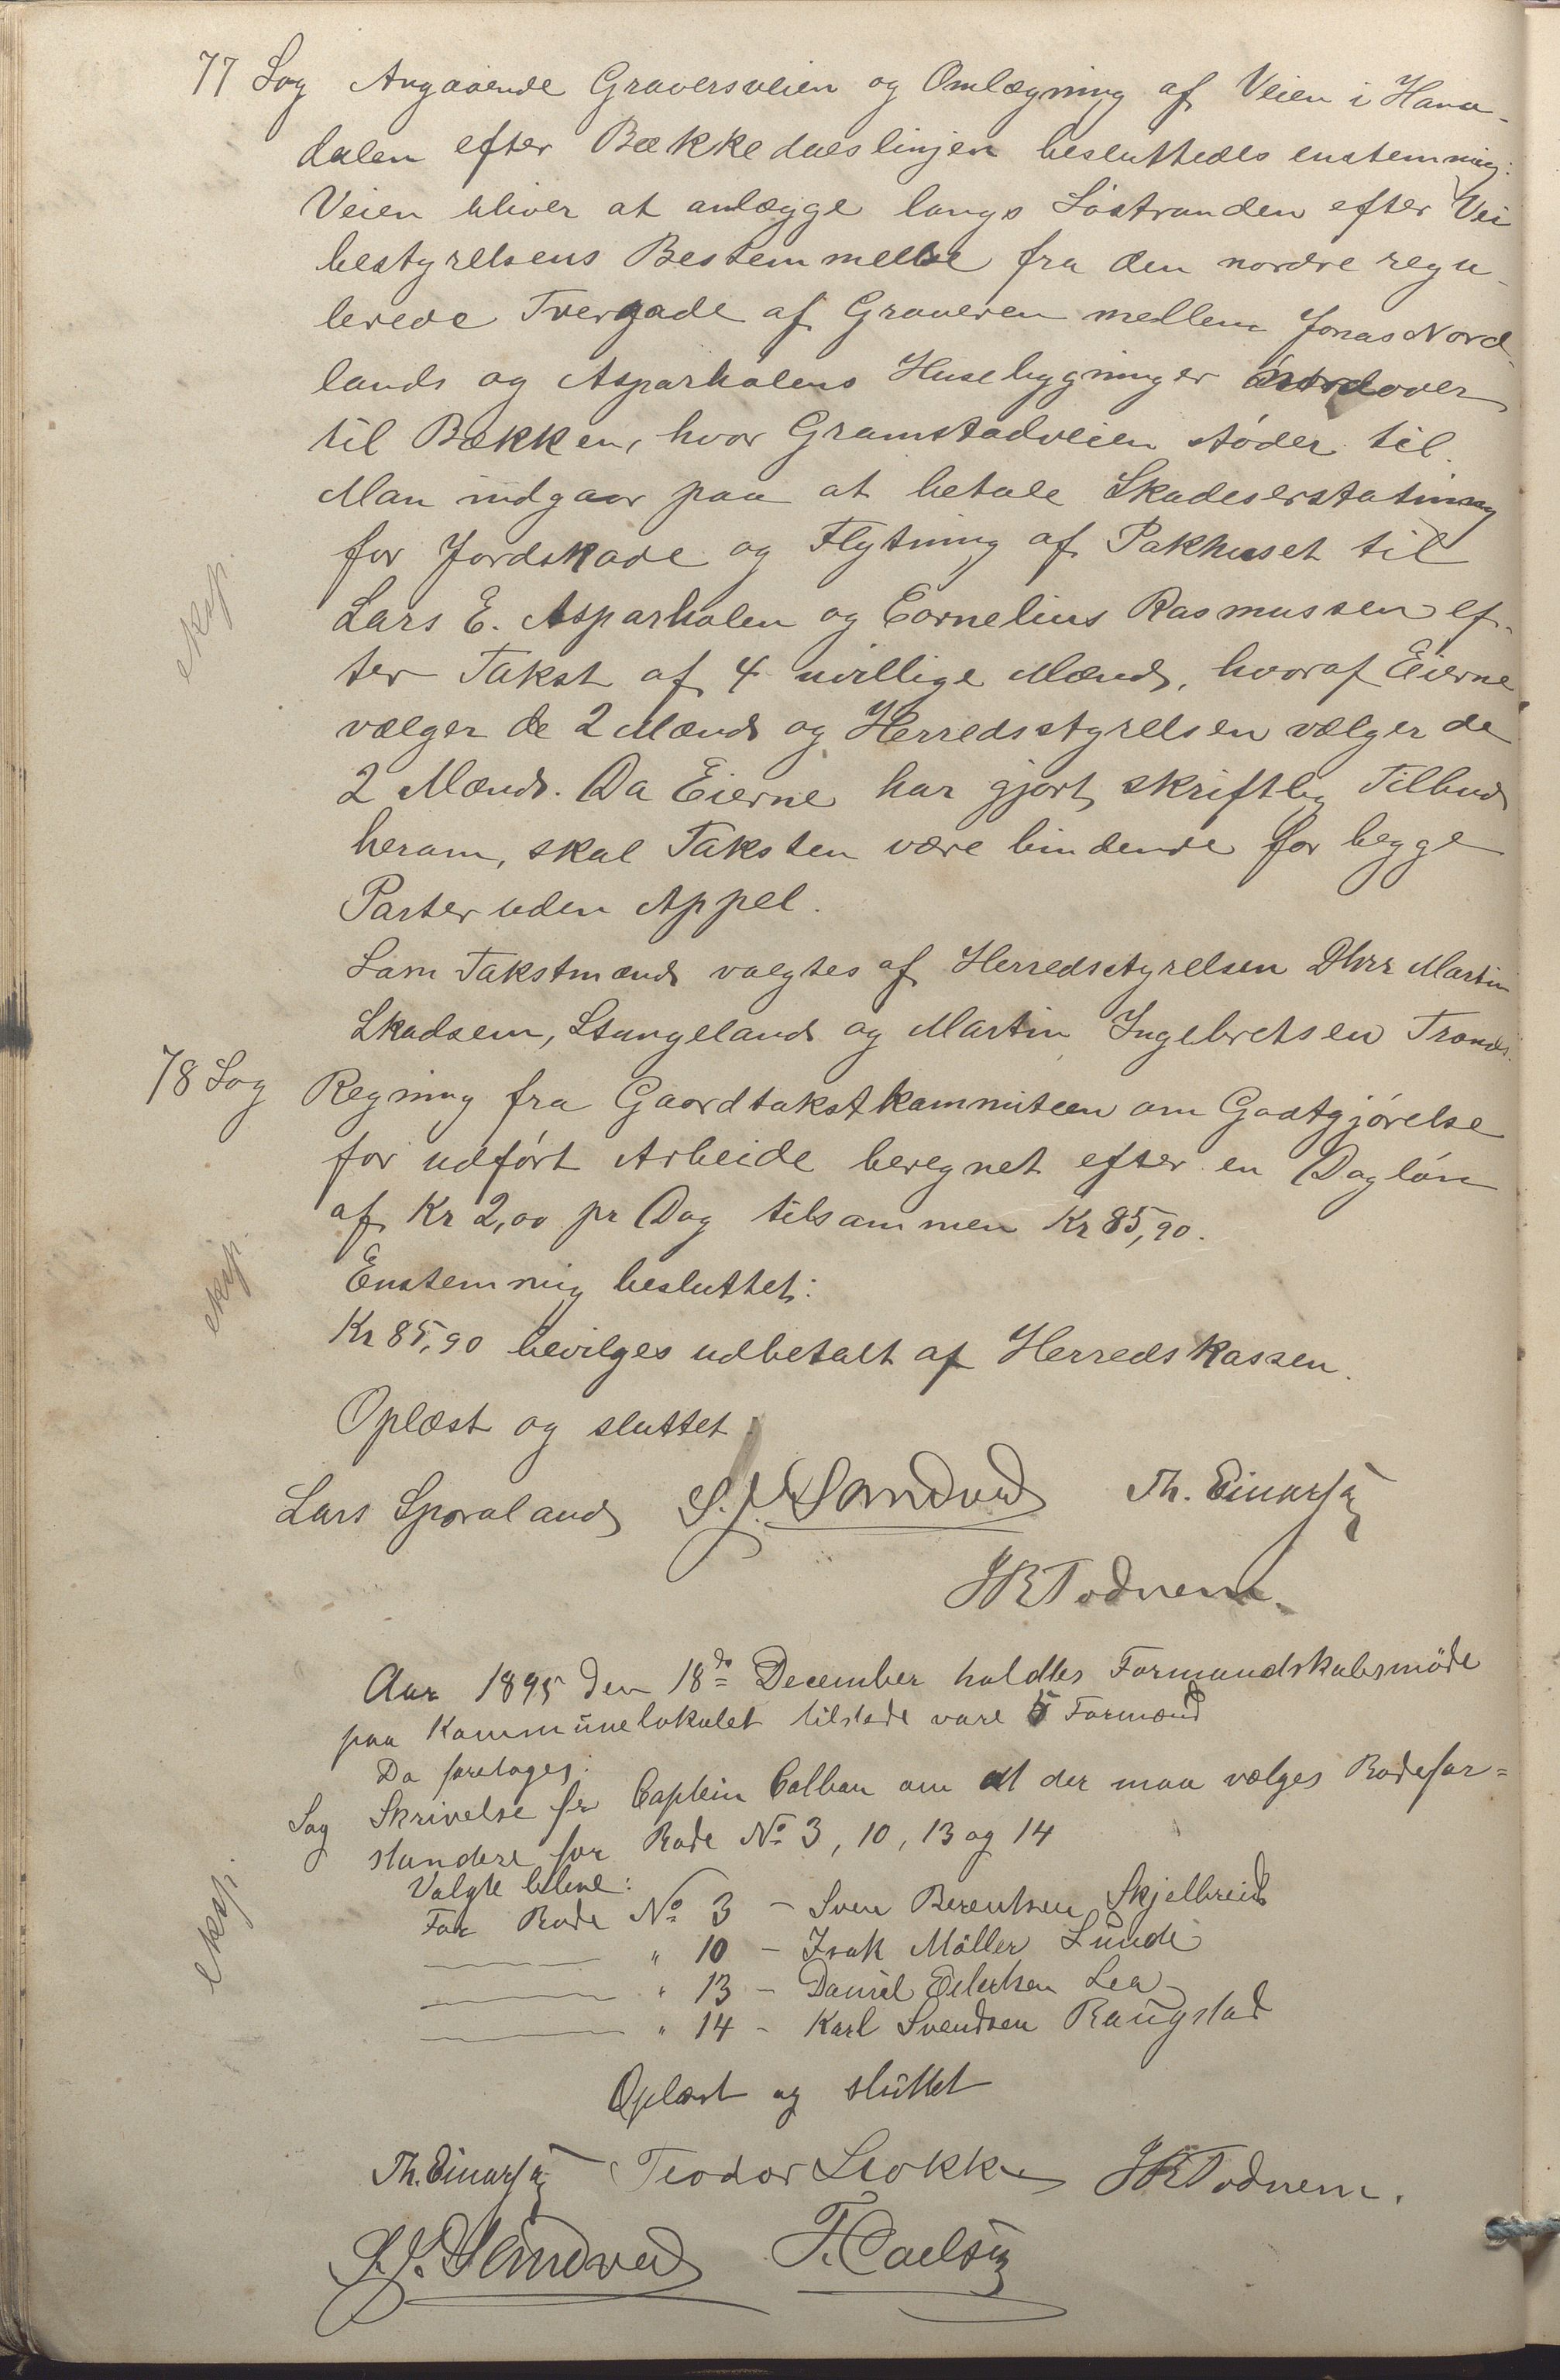 77 Sag Angaaende Graversveien og Omlægning af Veien i Hana-
dalen efter Bækkedalslinjen besluttedes enstemmig:
Veien bliver at anlægge langs Søstranden efter Vei
bestyrelsens Bestemmelse fra den nordre regu-
lerede Tvergade af Graveren mellem Jonas Nord-
lands og Asparholens Husebygninger nordover
til Bækken, hvor Gramstadveien støder til.
Man indgaar paa at betale Skadeserstatning
for Jordskade og Flytning af Pakhuset til
eksp.
Lars E. Asparholen og Cornelius Rasmussen ef-
ter Takst af 4 uvillige Mænd, hvoraf Eierne
vælger de 2 Mænd og Herredsstyrelsen vælger de
2 Mænd. Da Eierne har gjort skriftlig Tilbud
herom, skal Taksten være bindende for begge
Parter uden Appel.
Som Takstmænd valgtes af Herredsstyrelsen Dhrr Martin
Skadsem, Stangeland og Martin Ingebretsen Tronds.
78 Sag Regning fra Gaardtakstkommiteen om Godtgjørelse
for udført Arbeide beregnet efter en Dagløn
af Kr 2,00 pr Dag tilsammen Kr 85,90.
eksp.
Enstemmig besluttet:
Kr 85,90 bevilges udbetalt af Herredskassen.
Oplæst og sluttet.
Lars Sporaland S.J. Sandved Th. Einarsen
JRTodnem.
Aar 1895 den 18de December holdtes Formandskabsmöde
paa Kommunelokalet tilstede vare 5 Formænd
Da foretoges:
Sag Skrivelse fr Captein Calban om at der maa vælges Rodefor=
standere for Rode No 3, 10, 13 og 14
Valgte bleve:
eksp.
For Rode No 3 - Sven Berentsen Skjelbreid
" 10 - Isak Möller Lunde
" 13 - Daniel Eilertsen Lea
" 14 - Karl Svendsen Raugstad
Oplæst og sluttet
Th. Einarsen Teodor Stokke JRTodnem.
S.J. Sandved T. Carlsen